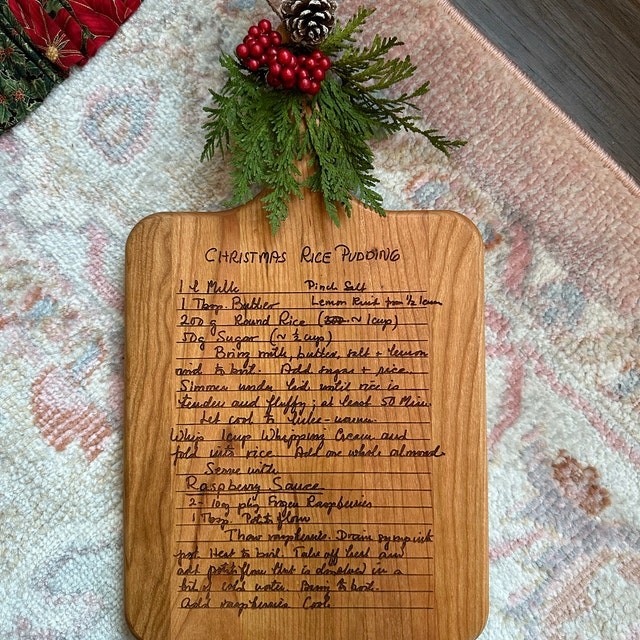 CHRISTMAS RICE PUDDING
1 l Milk Pinch Salt
1 Tbsp. Butter Lemon Rind from ½ lemon
200 g Round Rice (~ 1 cup)
50g Sugar (~ ½ cup)
Bring milk, butter, salt + lemon
rind to boil. Add sugar + rice.
Simmer under lid until rice is
tender and fluffy; at least 50 Min.
Let cool to luke-warm.
Whip 1 cup Whipping Cream and
fold into rice. Add one whole almond.
Serve with
Raspberry Sauce
2- 10oz pkg Frozen Raspberries
1 Tbsp. Potato flour
Thaw raspberries. Drain syrup into
pot. Heat to boil. Take off heat and
add potato flour that is dissolved in a
bit of cold water. Bring to boil.
Add raspberries Cool.